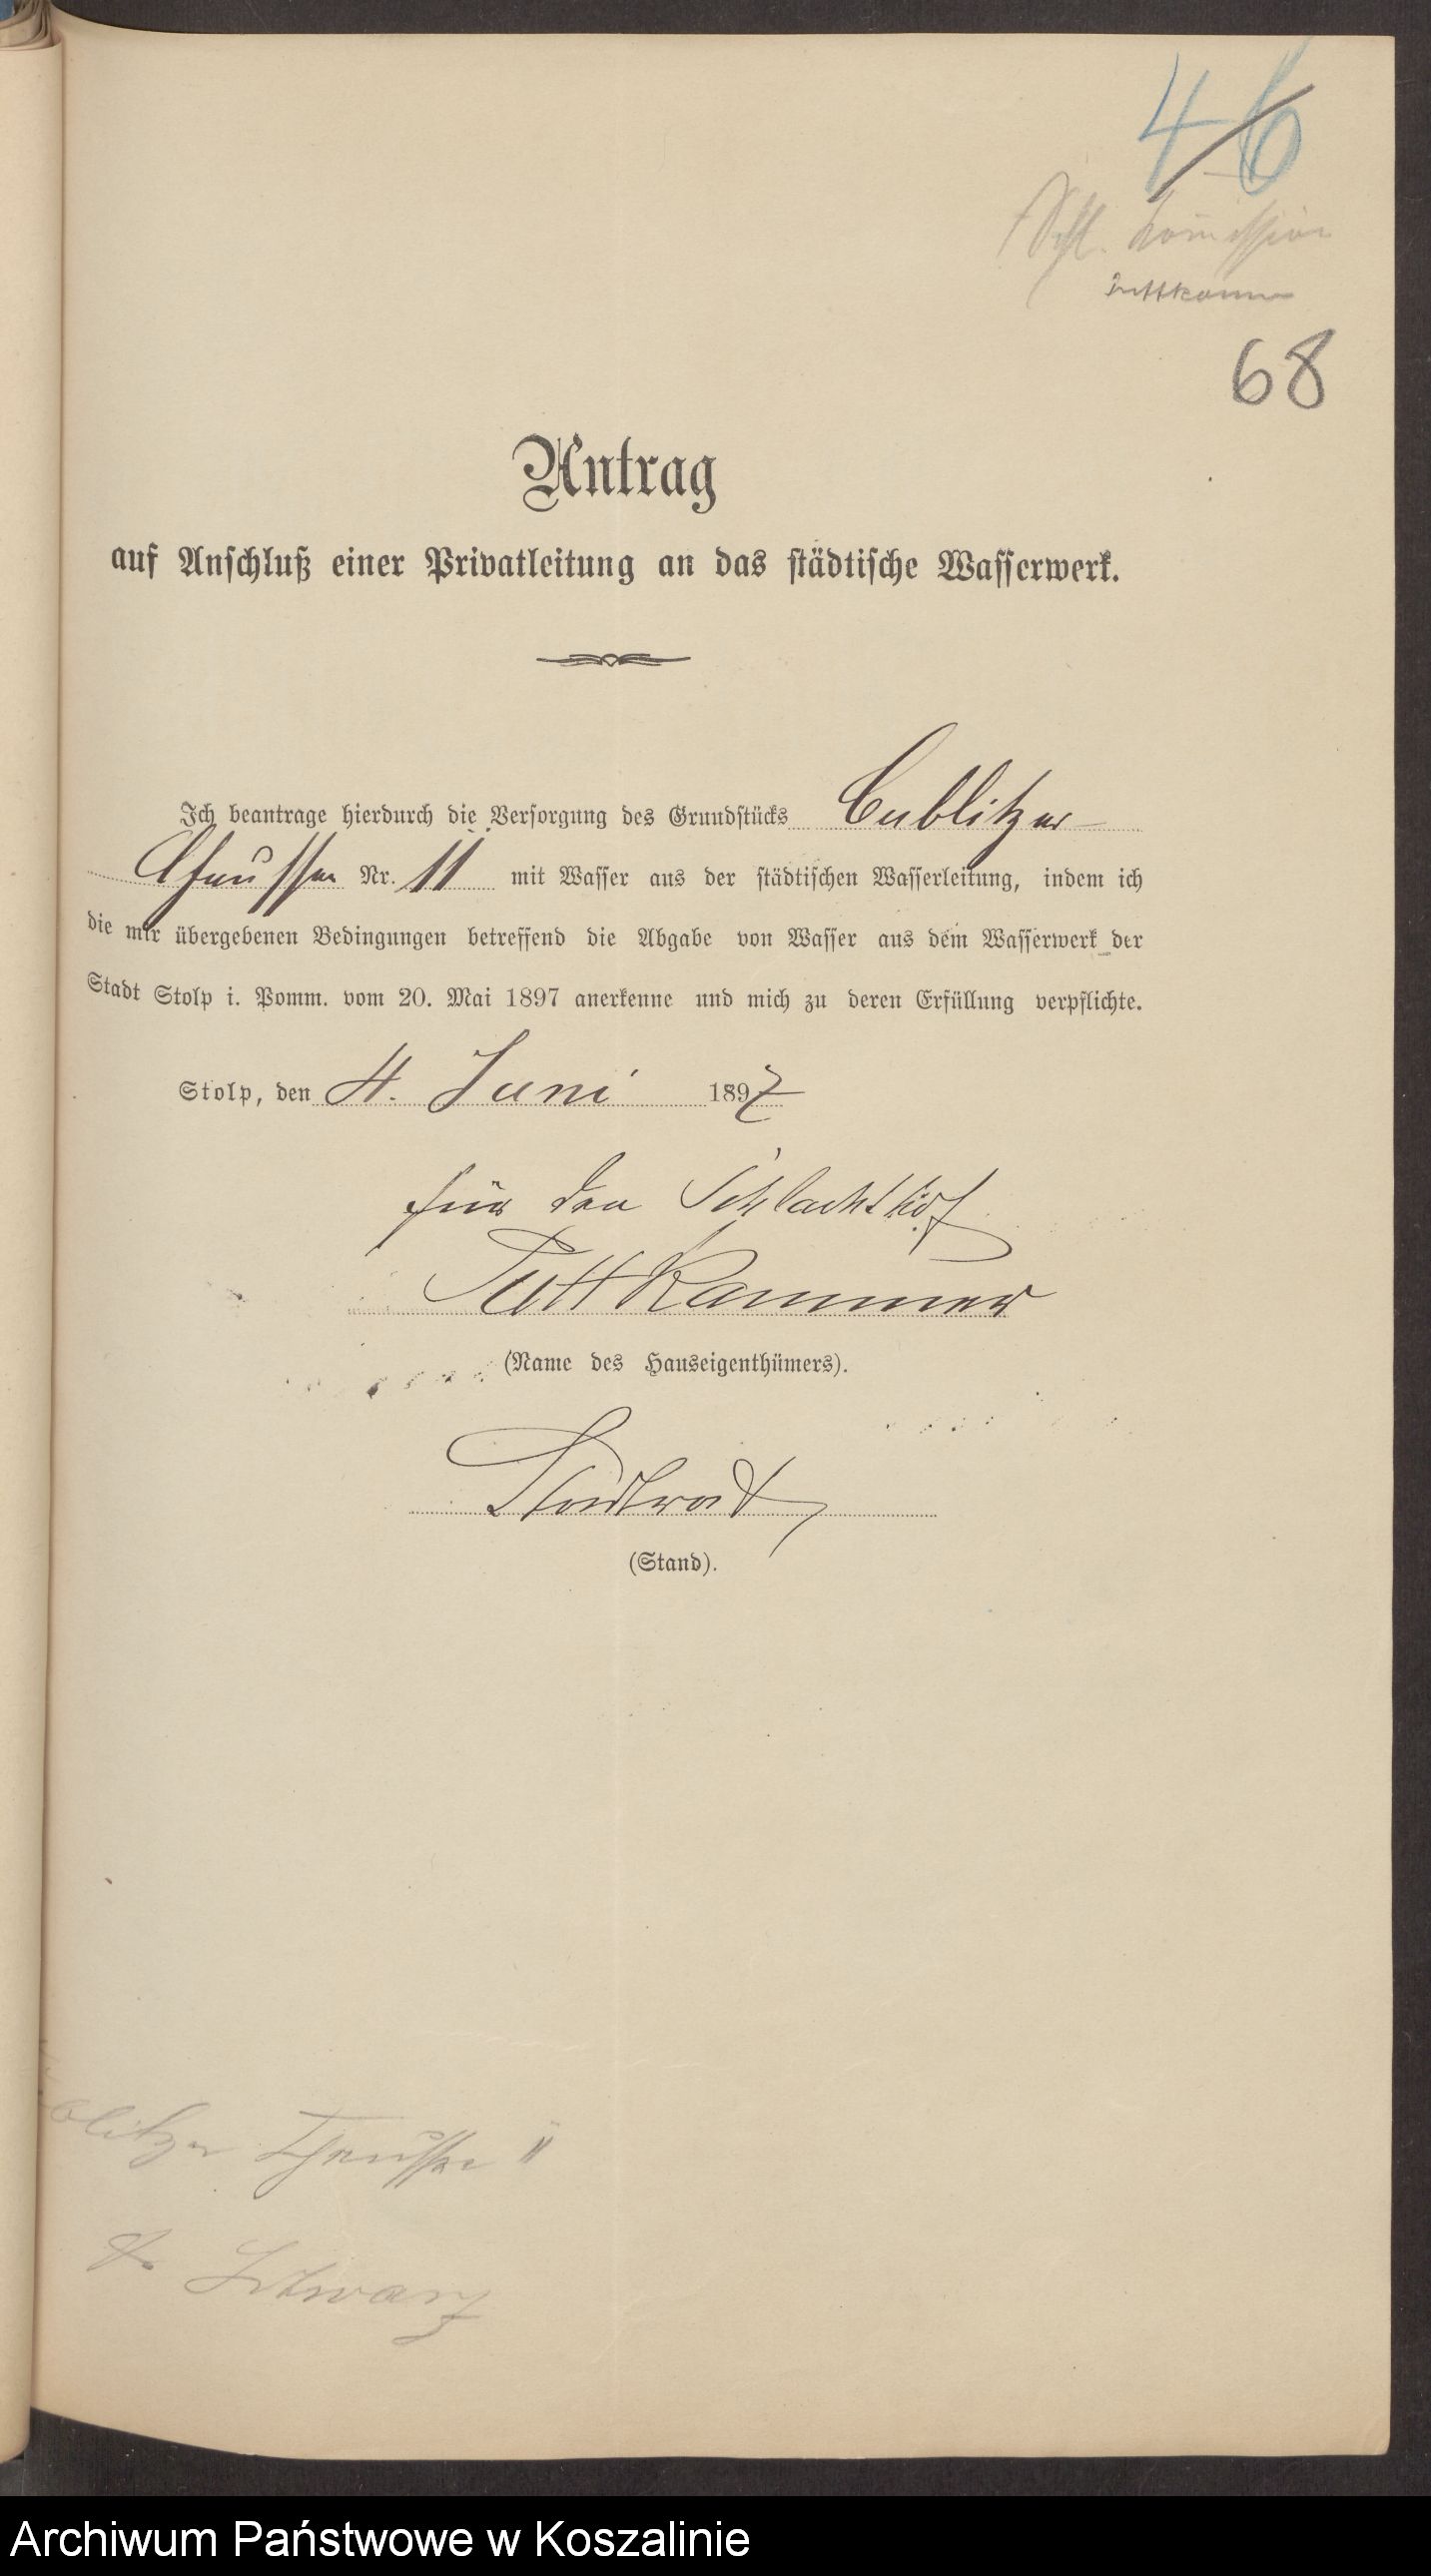 46
Schl. Kommission
Puttkamer
68
Antrag
auf Anschluß einer Privatleitung an das städtische Wasserwerk.
Ich beantrage hierdurch die Versorgung des Grundstücks Cublitzer
Chaussee Nr. 11 mit Wasser aus der städtischen Wasserleitung, indem ich
die mir übergebenen Bedingungen betreffend die Abgabe von Wasser aus dem Wasserwerk der
Stadt Stolp i. Pomm. vom 20. Mai 1897 anerkenne und mich zu deren Erfüllung verpflichte.
Stolp, den 4. Juni 1897
für den Schlachthof
Puttkammer
(Name des Hauseigenthümers).
Stadtrat
(Stand).
blitzer Chaussee 11
Schwarz
Archiwum Państwowe w Koszalinie